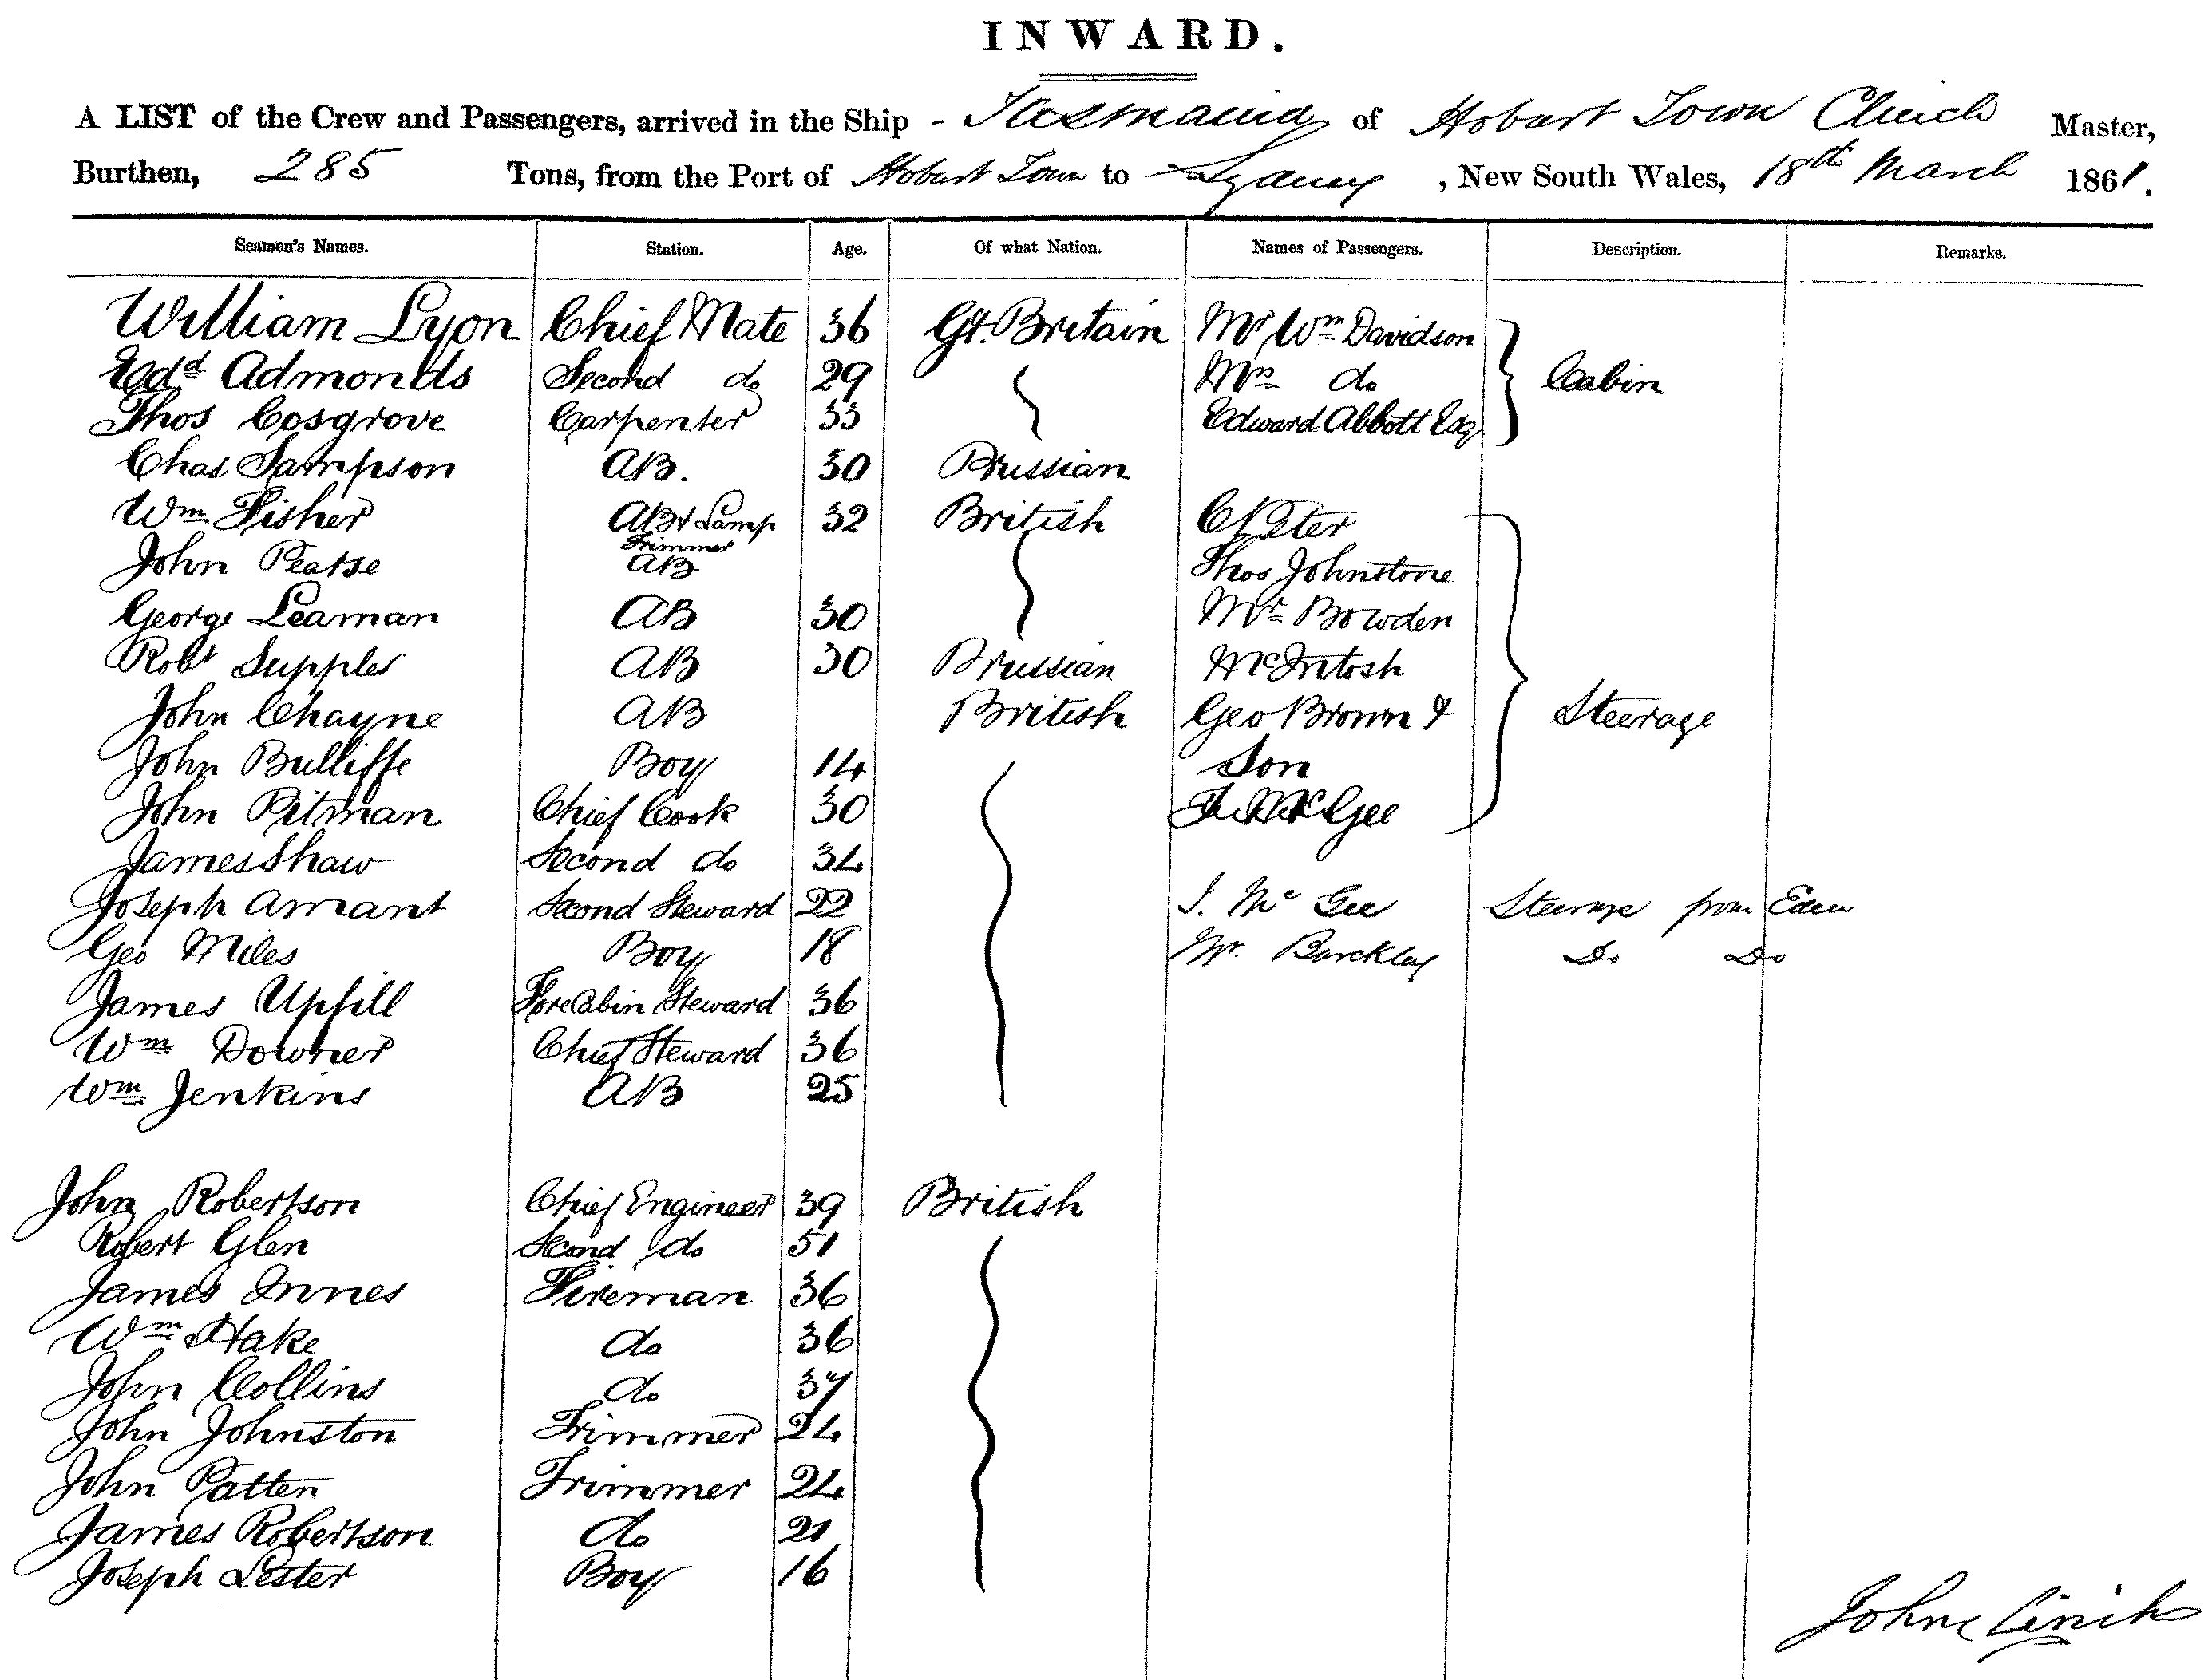 INWARD.
A LIST of the Crew and Passengers, arrived in the Ship - Tasmania of Hobart Town Clinch Master,
Burthen, 285 Tons, from the Port of Hobart Town to Sydney, New South Wales, 18th March 1861.
Seamen's Names. Station. Age. Of what Nation. Names of Passengers. Description. Remarks.
William Lyon Chief Mate 36 Gt. Britain Mr Wm Davidson
Edd Admonds Second do 29 Mrs do Cabin
Thos Cosgrove Carpenter 33 Edward Abbott Esq
Chas Sampson AB. 30 Prussian
Wm Fisher AB & Lamp Trimmer 32 British C Peter
John Pearse AB Thos Johnstone
George Leaman AB 30 Mr Bowden
Robt Supples AB 30 Prussian McIntosh
John Chayne AB British Geo Brown & Steerage
John Bulliffe Boy 14 Son
John Pitman Chief Cook 30 McGee
James Shaw Second do 34
Joseph Amant Second Steward 22 J. Mc Gee Steerage from Eden
Geo Miles Boy 18 Mr. Barckley Do Do
James Upfill Fore Cabin Steward 36
Wm Downer Chief Steward 36
Wm Jenkins AB 25
John Robertson Chief Engineer 39 British
Robert Glen Second do 51
James Innes Fireman 36
Wm Hake do 36
John Collins do 37
John Johnston Trimmer 24
John Patten Trimmer 24
James Robertson do 21
Joseph Lester Boy 16
John Clinch